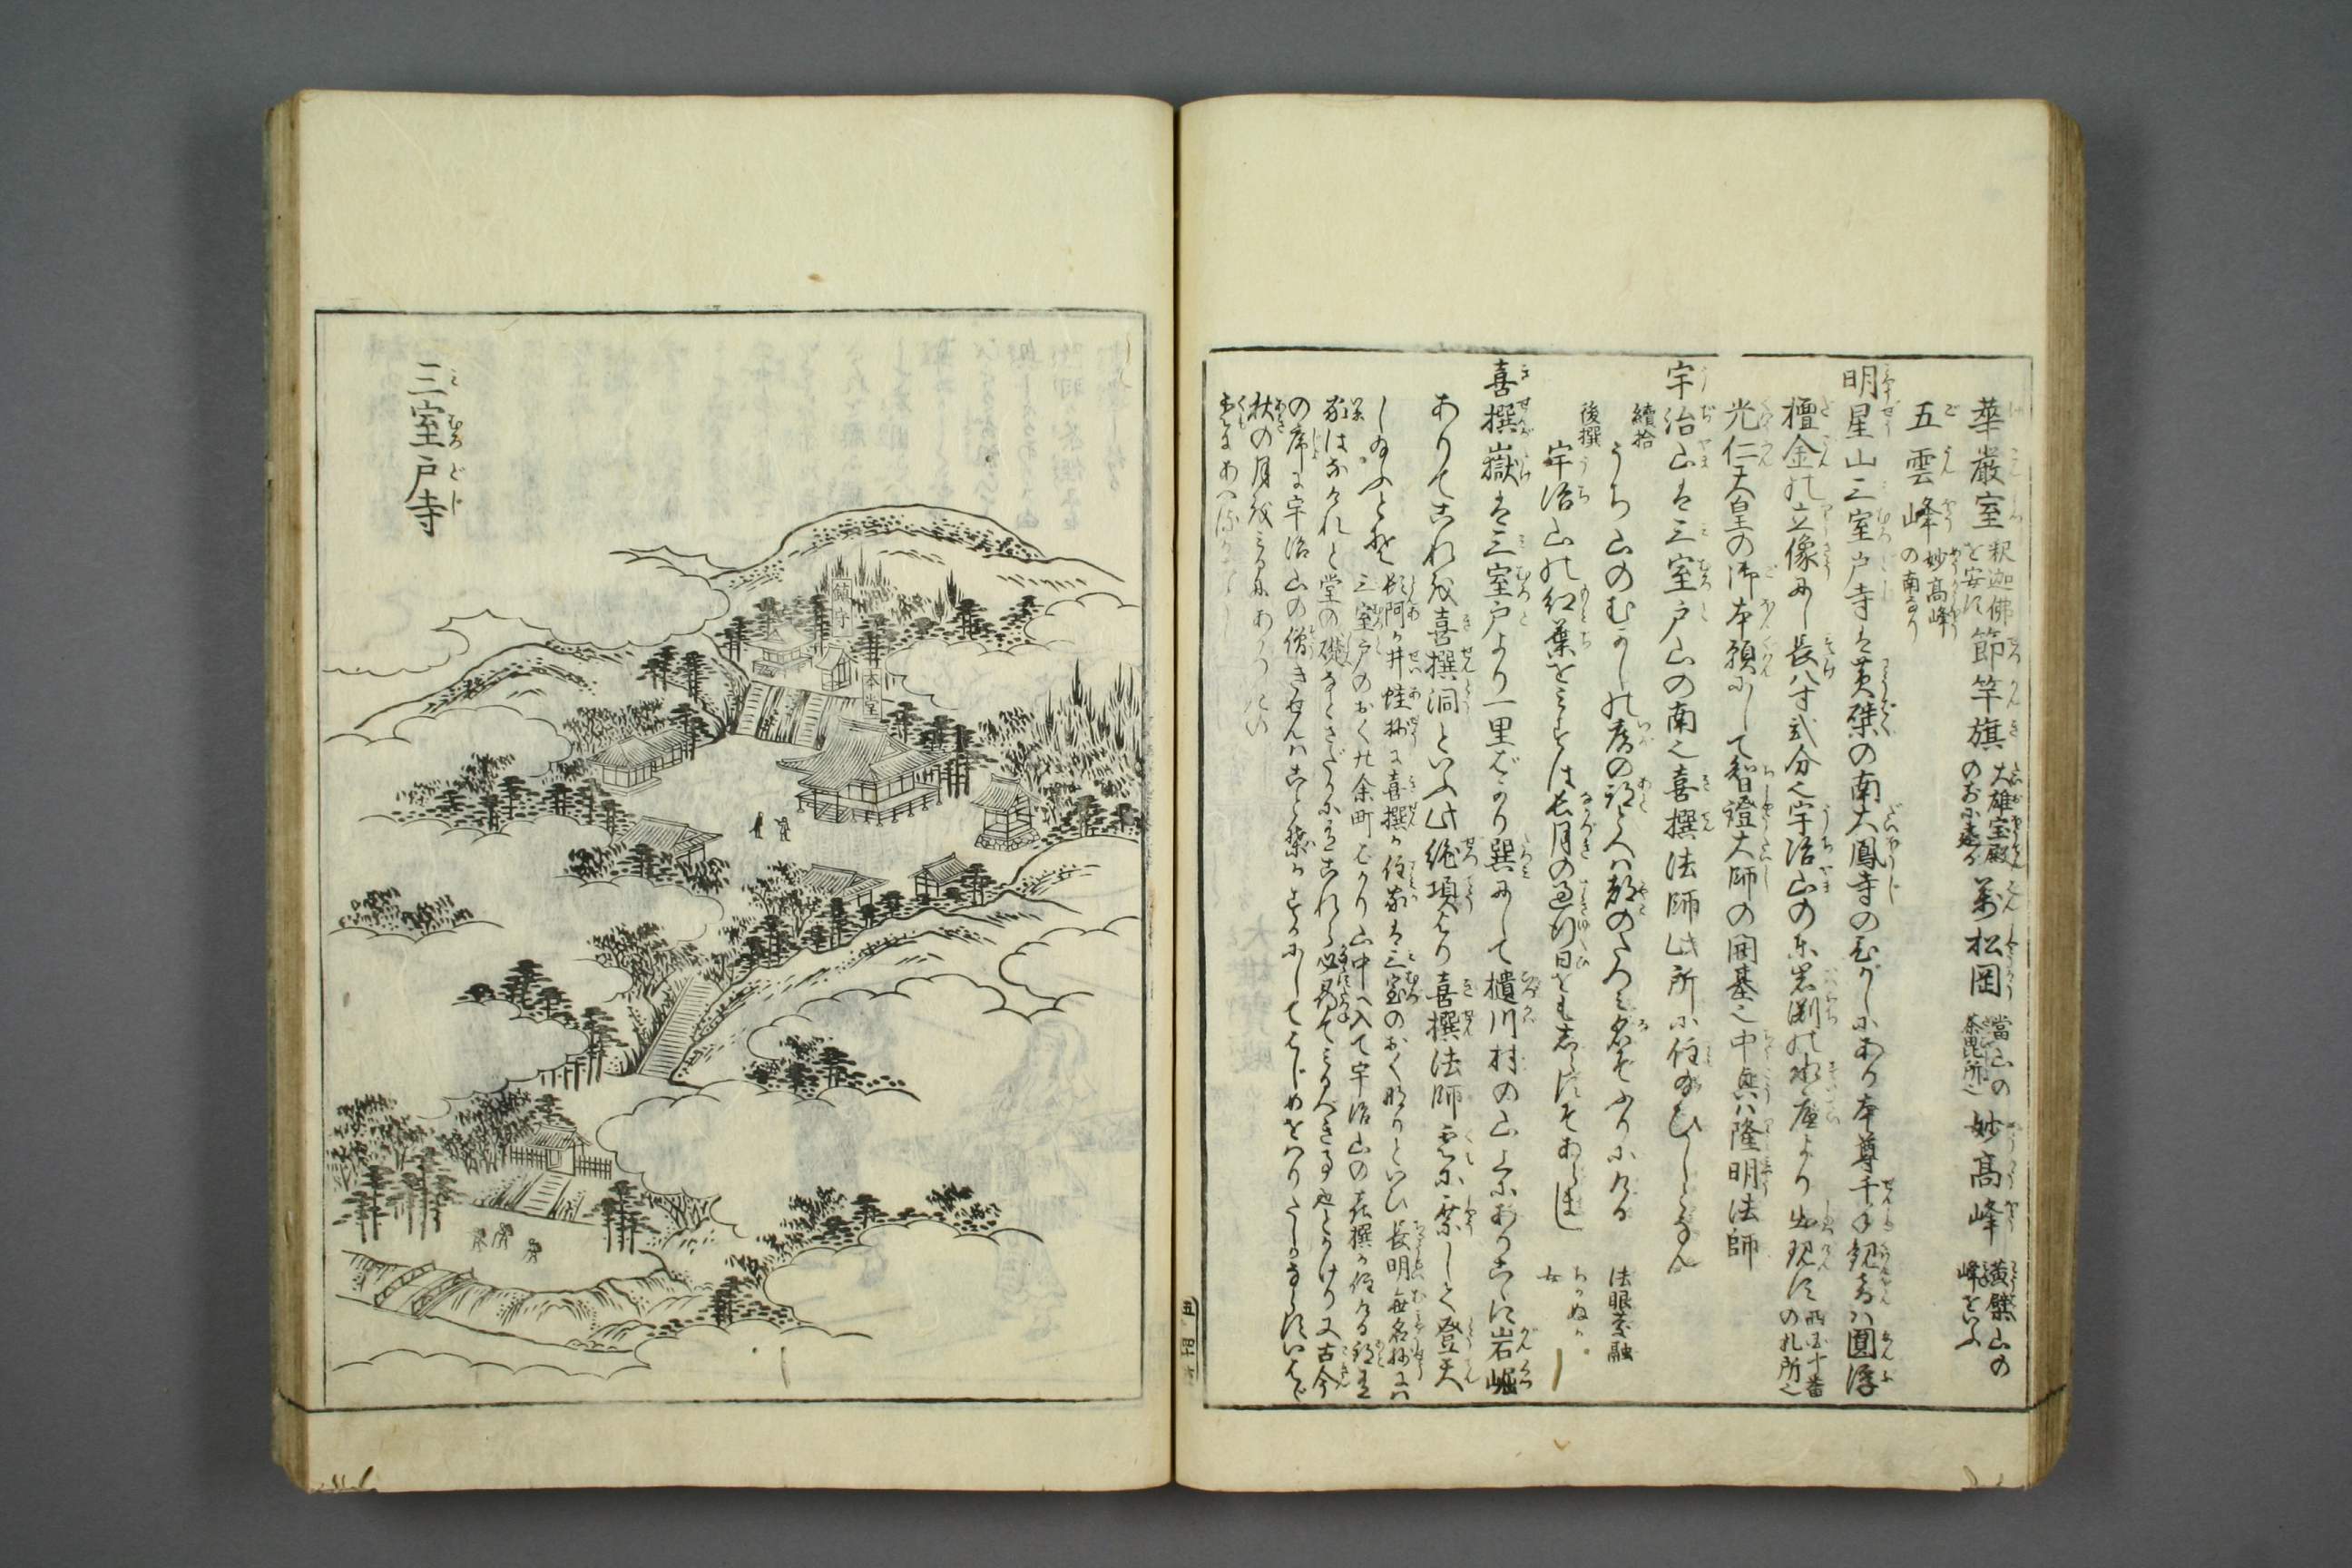 華厳室 釈迦佛を安ず 節竿旗 大雄宝殿のまへに建る 萬松岡 當山の茶毘所也 妙髙峰 黄檗山の峰をいふ
五雲峰 妙髙峰の南なり
明星山三室戸寺は黄檗の南大鳳寺のひがしにあり本尊千手観音は圓浮
檀金の立像にし長八寸弐分也宇治山の東岩渕の水底より出現す 西国十番の札所也
光仁天皇の御本願にして智證大師の開基也中興は隆明法師
宇治山は三室戸山の南也喜撰法師此所に住給ひしとなん
續拾 うぢ山のむかしの庵の跡とへば都のたつみ名ぞふりにける 法眼慶融
後撰 宇治山の紅葉をみずは長月の過行日をもしらずぞあらまし ちかぬが女
喜撰嶽は三室戸より一里ばかり巽にして櫃川村の山上にありこゝに岩崛
ありてこれを喜撰洞といふ此絶頂より喜撰法師雲に乗じて登天
し給ふとぞ 長明無名抄には
三室戸のおく廿余町ばかり山中へ入て宇治山の喜撰が住ける跡有
家はなけれど堂の礎などさだかにありこれら必尋てみるべき事也とかけり又古今
の序に宇治山の僧きせんはことば幽かにしてはじめをはりたしかならずいはゞ
秋の月をみるにあかつきの
雲にあへるがごとし
三室戸寺
鎮守
本堂